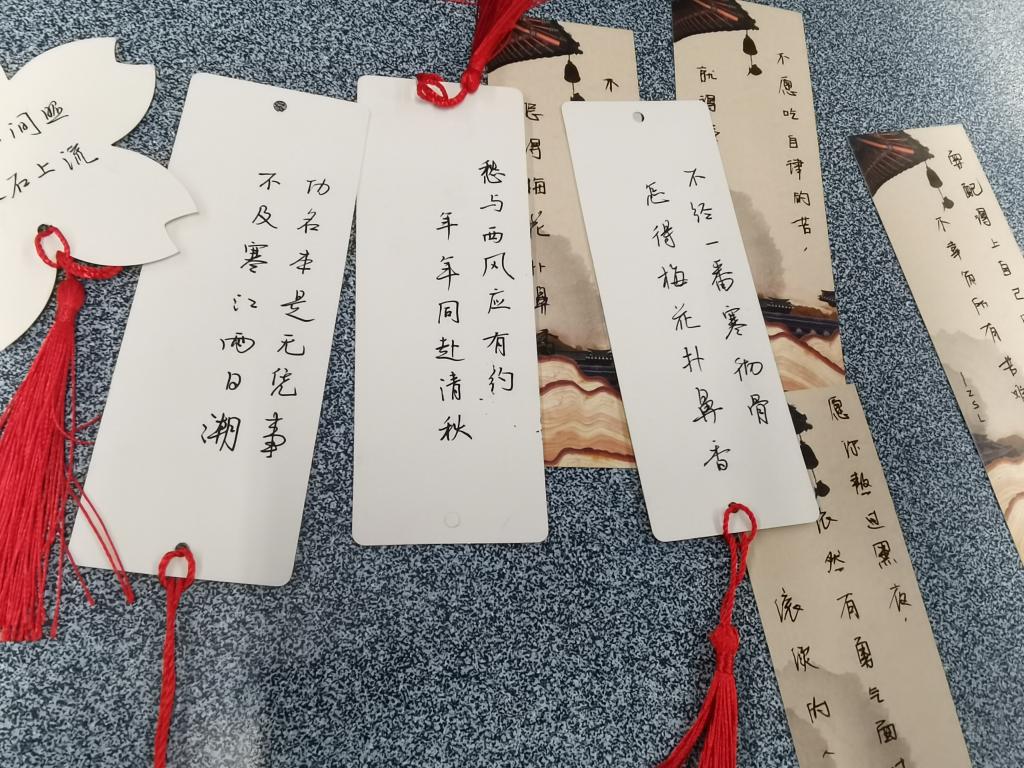 间照
石上流
功名本是无凭事
不及寒江两日潮
愁与西风应有约
年年同赴清秋
不
怎得梅花扑鼻
不经一番寒彻骨
怎得梅花扑鼻香
不愿吃自律的苦，
就得
愿你熬过黑夜，
依然有勇气面
滚
要配得上自己
不辜负所有苦